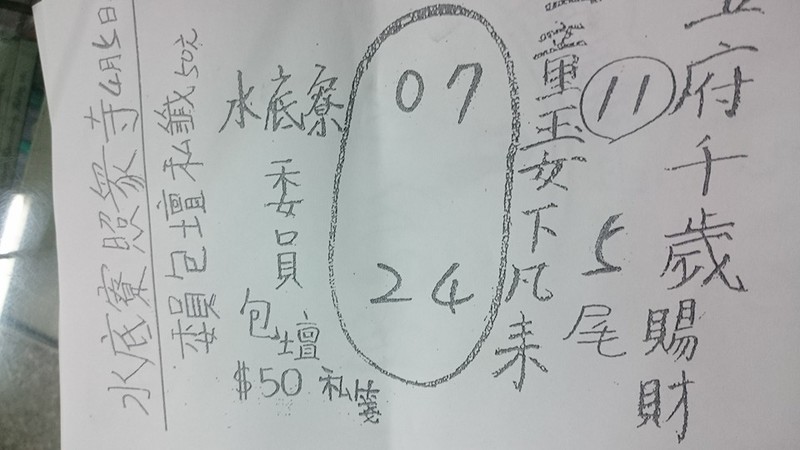 府千歲賜財
11
5尾
童玉女下凡来
07
24
水底寮
委員
包壇
$50 私箋
委員包壇私籤50元
水底寮照眾寺4月5日